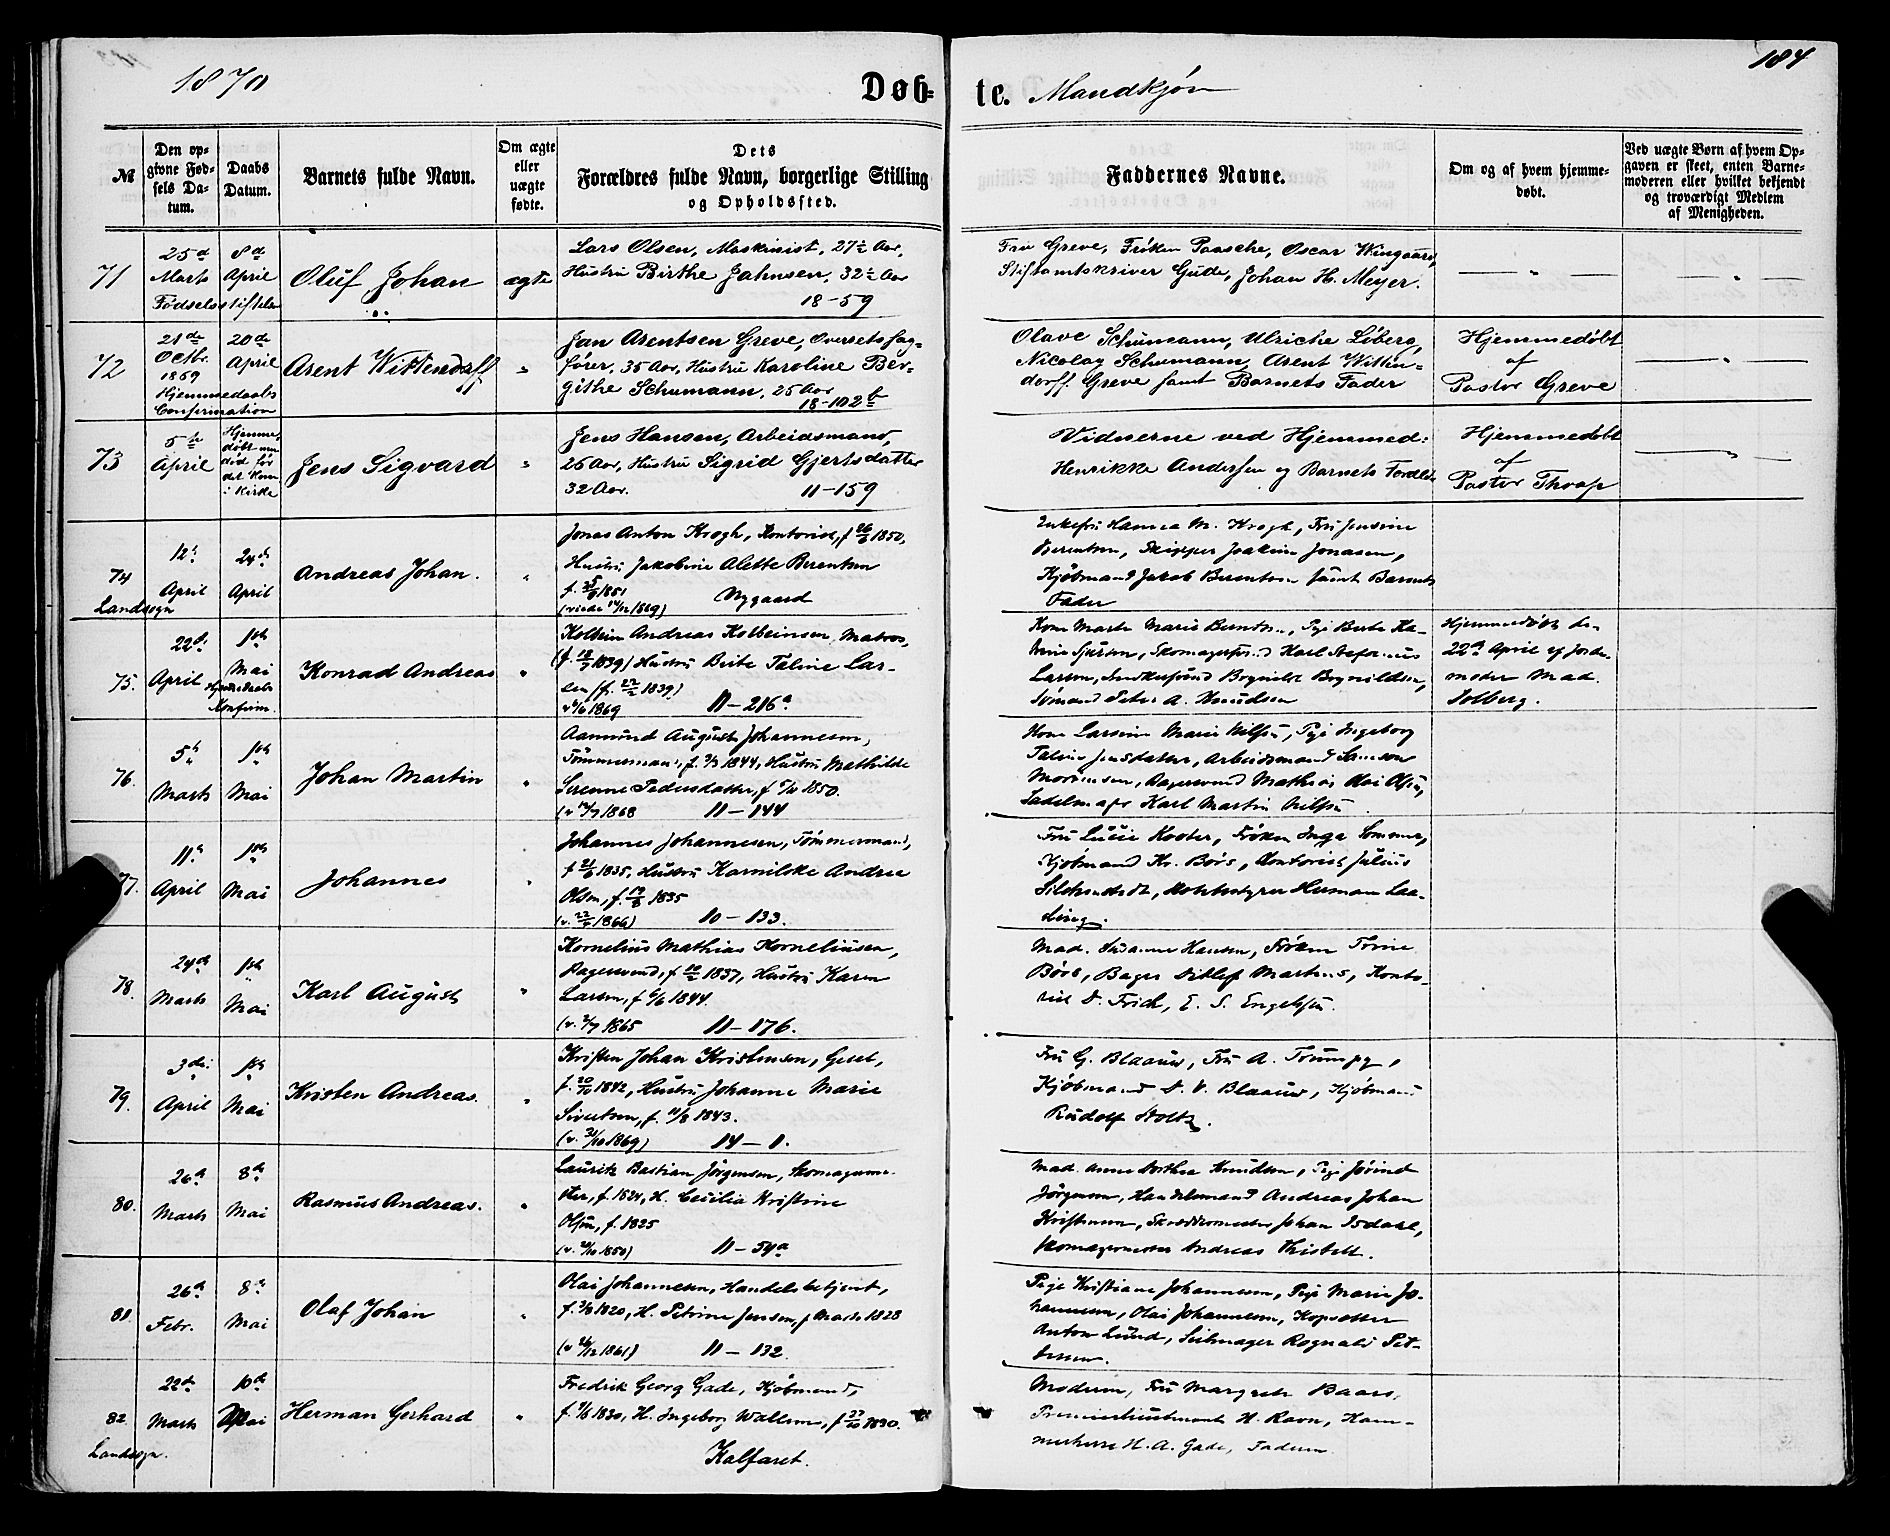 184
1870
Døb-
te. Mandkjøn
№
Den op-
givne Fød-
sels Da-
tum.
Daabs
Datum.
Barnets fulde Navn.
Om ægte
eller
uægte
fødte.
Dets
Forældres fulde Navn, borgerlige Stilling
og Opholdssted.
Faddernes Navne.
Om og af hvem hjemme-
døbt.
Ved uægte Børn af hvem Op-
gaven er skeet, enten Barne-
moderen eller hvilket bekjendt
og troværdigt Medlem
af Menigheden.
71
25de
Marts
Fødselsstiftelsen
8de
April
Oluf Johan
ægte
Lars Olsen, Maskinist, 27½ Aar,
Hustru Birthe Jahnsen, 32½ Aar
18-59
Fru Greve, Frøken Paasche, Oscar Wingaard,
Stiftamtskriver Gude, Johan H. Meyer.
72
21de
Octbr.
1869
Hjemmedaabs
Confirmation
20de
April
Arent Wittendorff
"
Jan Arentsen Greve, Oversetsfag-
fører, 35 Aar, Hustru Karoline Ber-
githe Schumann, 25 Aar
18-102b
Olave Schumann, Ulriche Løberg,
Nicolay Schumann, Arent Witten-
dorff Greve samt Barnets Fader
Hjemmedøbt
af
Pastor Greve
73
5te
April
Hjemme-
døbt men
død før
det kom
i Kirke
Jens Sigvard
"
Jens Hansen, Arbeidsmand,
26 Aar, Hustru Sigrid Gjertsdatter
32 Aar. 11-159
Vidnerne ved Hjemmed:
Henrikke Andersen og Barnets Forældre
Hjemmedøbt
af
Pastor Thrap
74
Landsogn
12te
April
24de
April
Andreas Johan.
"
Jonas Anton Krogh, Kontorist, f 26/6 1850,
Hustru Jakobine Alette Berentsen
f. 5/6 1851
(viede 14/12 1869) Nygaard
Enkefru Hanna M. Krogh, Fru Jensine
Berentsen, Skipper Joakim Jonasen,
Kjøbmand Jakob Berentsen samt Barnets
Fader
75.
22de
April
1ste
Mai
Hjemmedaabs
Konfirm.
Konrad Andreas
"
Kolbein Andreas Kolbeinsen, Matros,
(f. 18/7 1839) Hustru Berte Taline Lar-
sen (f. 27/2 1839)
1869 11-216a
Kone Marte Marie Berntsen, Pige Berte Ka-
Larsen, Snedkersvend Bognild Bognildsen,
Sømand Peter A. Knudsen
Hjemmedøbt den
22de April af Jorde-
moder Mad.
Solberg.
76.
5te
Marts
1ste
Mai
Johan Martin
"
Aamund August Johannesen,
Tømmermand, f. 9/3 1844, Hustru Mathilde
Serenne Pedersdatter, f 1850.
(v 12/7 1868 11-144
Kone Larsine Marie Nilsen, Pige Ingeborg
Taline Jensdatter, Arbeidsmand Samson
Mortensen, Bagersvend Mathias Olai Olsen,
Sadelmager Karl Martin Nilsen
77.
11te
April
1ste
Mai
Johannes
"
Johannes Johannesen, Tømmermand,
f 21/6 1835, Hustru Kornilske Andrea
Olsen, f. 19/8 1835
(v. 27/5 1866) 10-133.
Fru Lucie Koster, Frøken Inga Sommer,
Kjøbmand Kr. Børs, Kontorist Julius
Herman Laa-
78.
24de
Marts
1ste
Mai
Karl August
"
Kornelius Mathias Korneliusen,
Bagersvend, f 1837, Hustru Karen
Larsen, f 6/6 1844.
(v. 2/7 1865 11-176.
Mad. Susanne Hansen, Frøken Torine
Børs, Bager Ditlef Martens, Konto-
rist D. Frich, E. S. Engelsen.
79.
3die
April
1ste
Mai
Kristen Andreas.
"
Kristen Johan Kristensen, Gesel,
f. 20/11 1842, Hustru Johanne Marie
Sivertsen, f. 11/8 1843.
(v. 31/10 1869) 14-1.
Fru G. Blaauw, Fru A. Trumpy,
Kjøbmand D. V. Blaauw, Kjøbmand
Rudolf Stoltz.
80.
26de
Marts
8de
Mai
Rasmus Andreas.
"
Lauritz Bastian Jørgensen, Skomagerme-
ster, f. 1824, H. Cecilia Kristine
Olsen, f. 1825
(v. 20/10 1850) 11-54a
Mad. Anne Dorthea Knudsen, Pige Jørind
Jørgensen, Handelsmand Andreas Johan
Kristensen, Skræddermester Johan Isdahl,
Skomagermester Andreas Thistell.
81.
26de
Febr.
8de
Mai
Olaf Johan
"
Olai Johannesen, Handelsbetjent,
f. 3/9 1820, H. Petrine Jensen, f Marts 1828
(v 26/12 1861) 11-132
Pige Kristiane Johannesen, Pige Marie Jo-
hannesen, Olai Johannesen, Kopsætter
Anton Lund, Seilmager Rognald Pet-
ersen.
82.
Landsogn.
22de
Marts
10de
Mai
Herman Gerhard
"
Fredrik Georg Gade, Kjøbmand,
f. 7/6 1830, H. Ingeborg Wallem, f 27/10 1830.
Kalfaret.
Modren, Fru Margrete Baars,
Premierlieutenant H. Ravn, Kam-
merherre H. A. Gade, Faderen